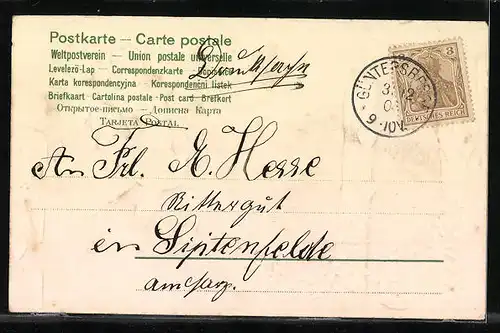 Postkarte – Carte postale
Weltpostverein – Union postale universelle
Levelező-Lap – Correspondenzkarte
Karta korespondencyjna – Korespondenční lístek
Briefkaart – Cartolina postale – Post card – Brefkort
Открытое-письмо – Дописна Карта
Tarjeta Postal
Drucksache
3
DEUTSCHES REICH
9-10V.
An Frl. A. Hesse
Rittergut
in Siptenfelde
am Harz.